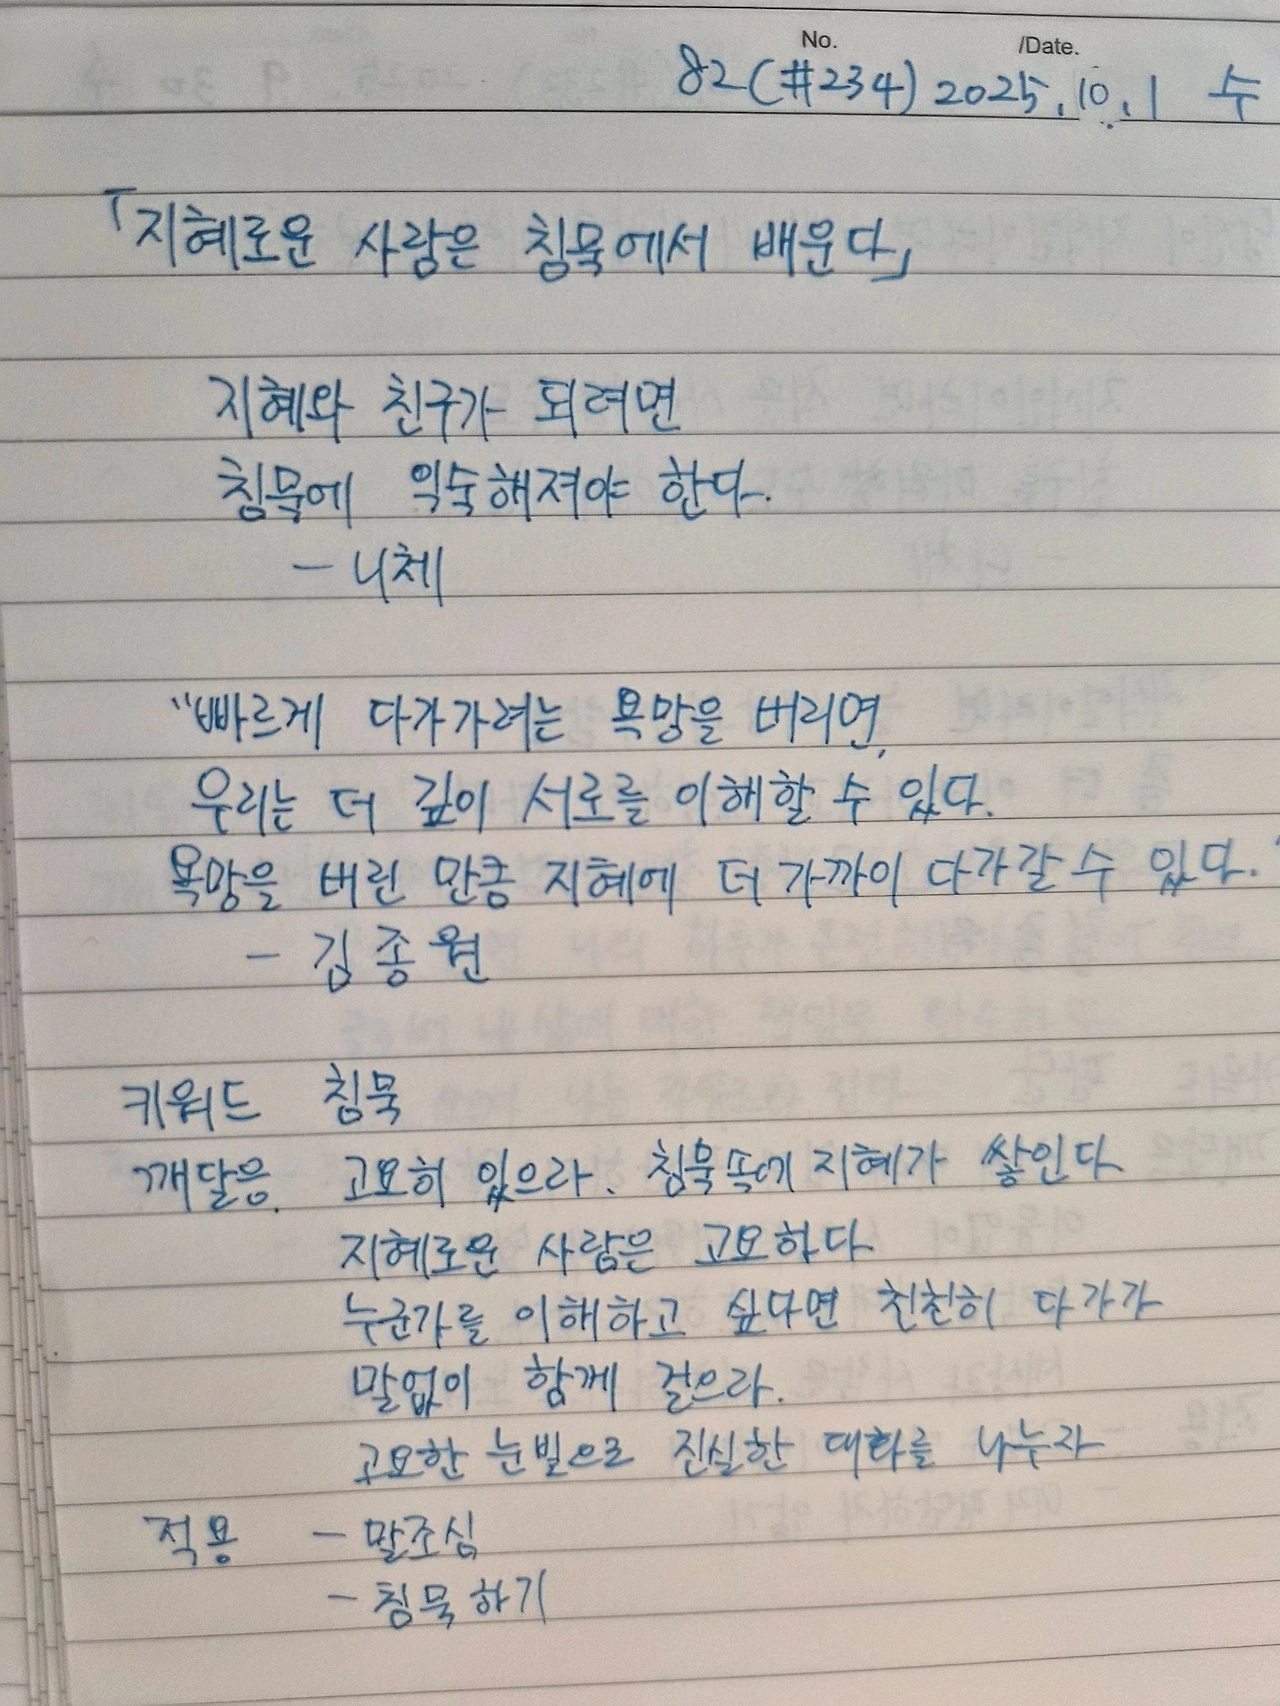 No. /Date.
82(#234) 2025.10.1 수
「지혜로운 사람은 침묵에서 배운다」
지혜와 친구가 되려면
침묵에 익숙해져야 한다.
- 니체
"빠르게 다가가려는 욕망을 버리면,
우리는 더 깊이 서로를 이해할 수 있다.
욕망을 버린 만큼 지혜에 더 가까이 다가갈 수 있다."
- 김종원
키워드 침묵
깨달음. 고요히 있으라. 침묵속에 지혜가 쌓인다
지혜로운 사람은 고요하다
누군가를 이해하고 싶다면 친친히 다가가
말없이 함께 걸으라.
고요한 눈빛으로 진실한 대화를 나누자
적용 - 말조심
- 침묵하기